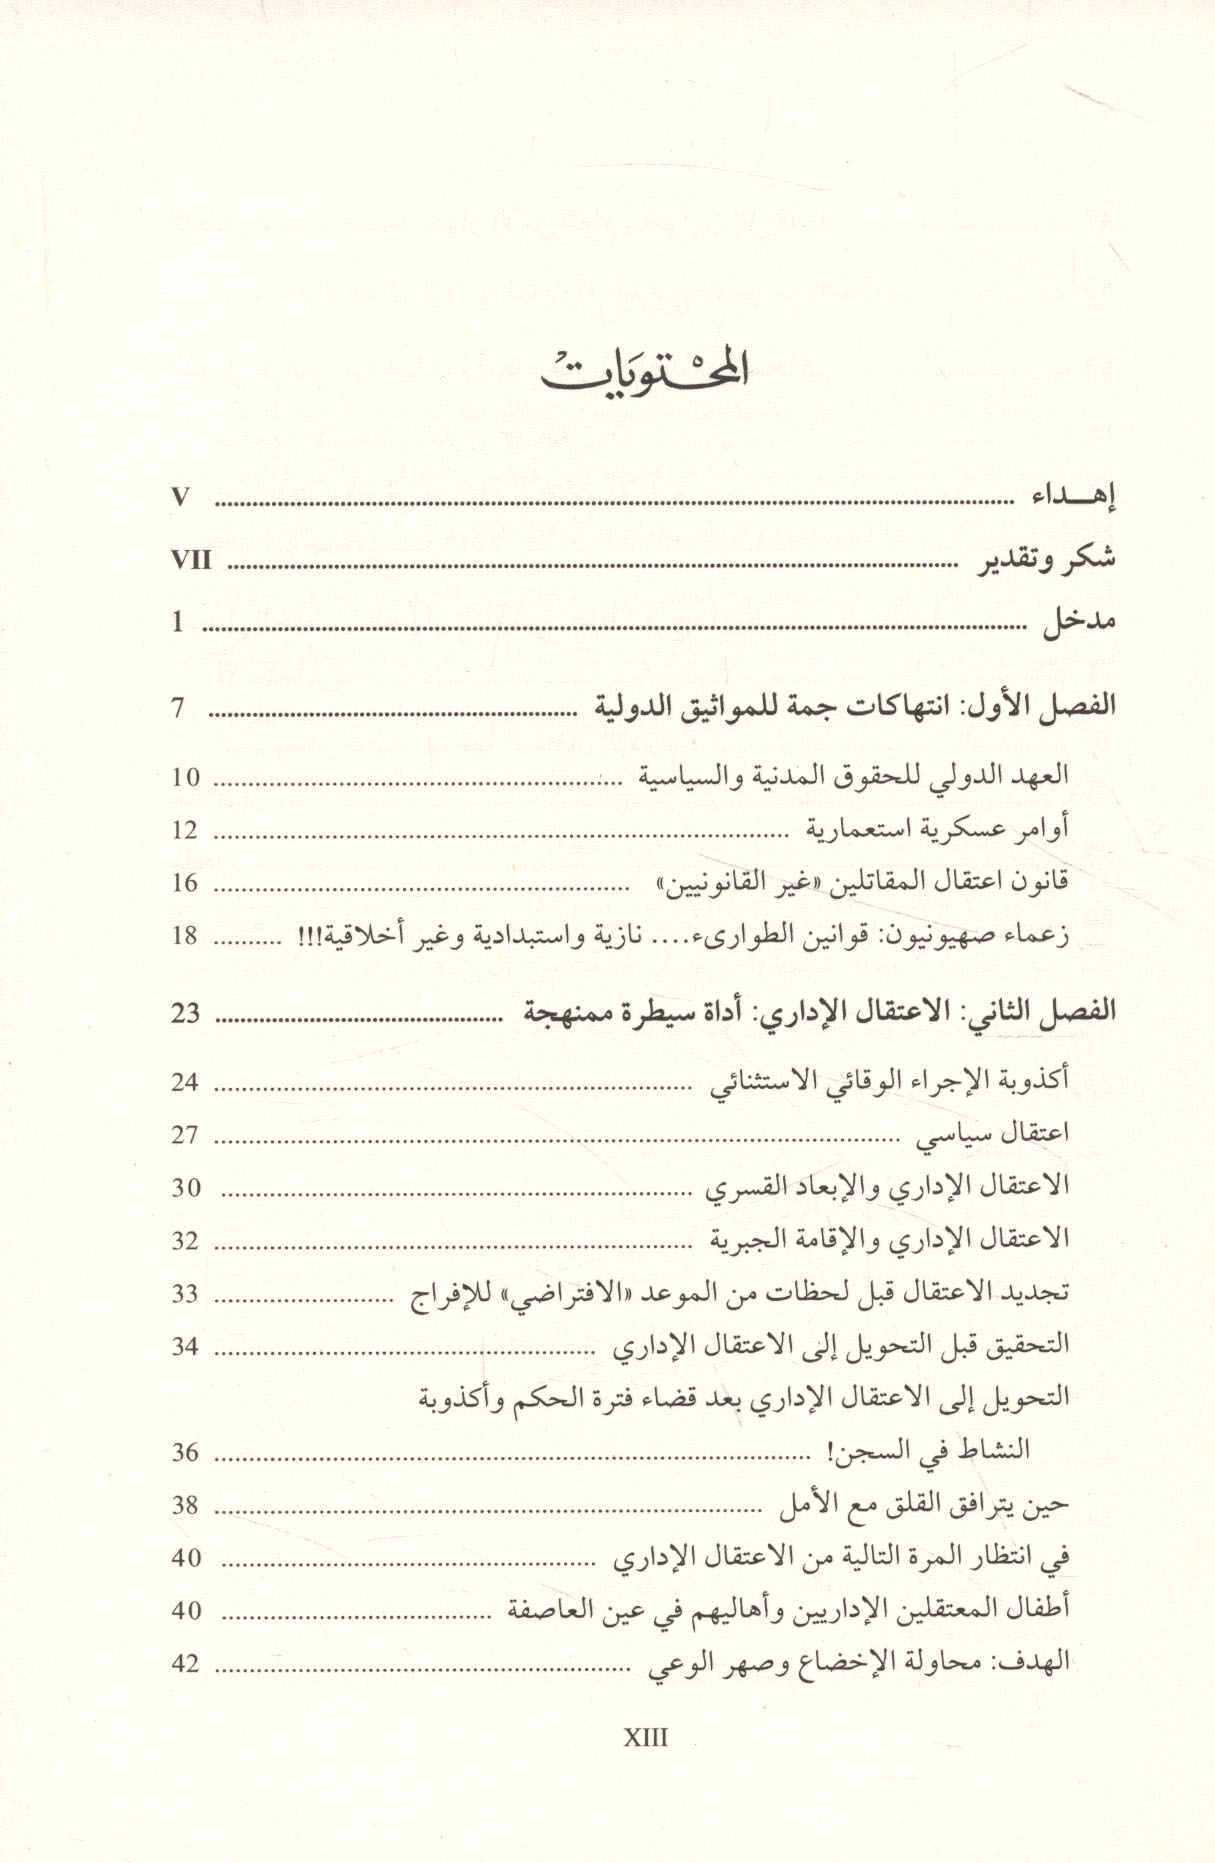 المحتويات
إهـــداء ........ V
شكر وتقدير ........ VII
مدخل ........ 1
الفصل الأول: انتهاكات جمة للمواثيق الدولية ........ 7
العهد الدولي للحقوق المدنية والسياسية ........ 10
أوامر عسكرية استعمارية ........ 12
قانون اعتقال المقاتلين «غير القانونيين» ........ 16
زعماء صهيونيون: قوانين الطوارىء.... نازية واستبدادية وغير أخلاقية!!! ........ 18
الفصل الثاني: الاعتقال الإداري: أداة سيطرة ممنهجة ........ 23
أكذوبة الإجراء الوقائي الاستثنائي ........ 24
اعتقال سياسي ........ 27
الاعتقال الإداري والإبعاد القسري ........ 30
الاعتقال الإداري والإقامة الجبرية ........ 32
تجديد الاعتقال قبل لحظات من الموعد «الافتراضي» للإفراج ........ 33
التحقيق قبل التحويل إلى الاعتقال الإداري ........ 34
التحويل إلى الاعتقال الإداري بعد قضاء فترة الحكم وأكذوبة
النشاط في السجن! ........ 36
حين يترافق القلق مع الأمل ........ 38
في انتظار المرة التالية من الاعتقال الإداري ........ 40
أطفال المعتقلين الإداريين وأهاليهم في عين العاصفة ........ 40
الهدف: محاولة الإخضاع وصهر الوعي ........ 42
XIII